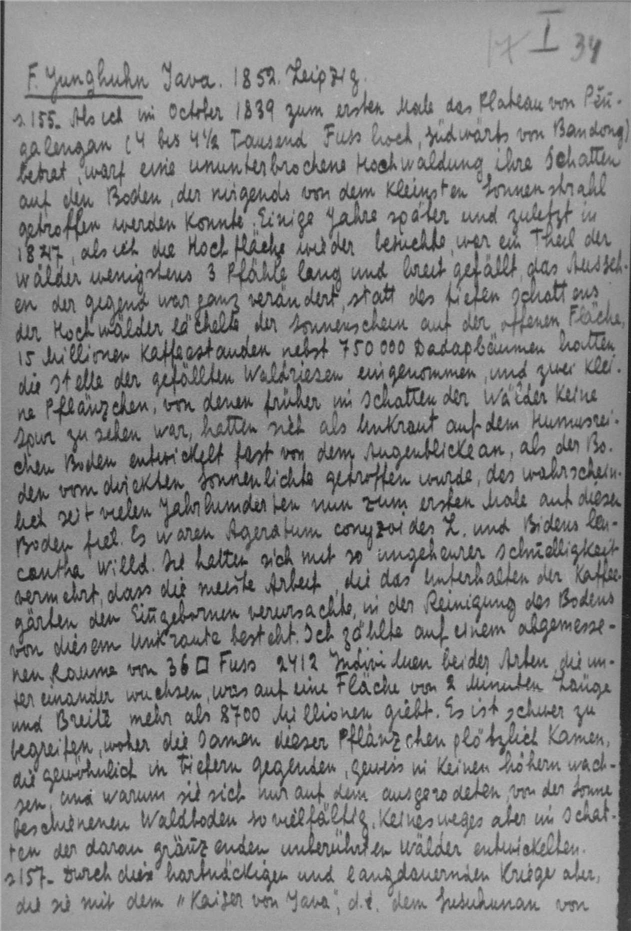 17 I 34
F. Junghuhn Java. 1852. Leipzig.
s 155_ Als ich im October 1839 zum ersten Male das Plateau von Pĕn-
galengan (4 bis 4½ Tausend Fuss hoch, südwärts von Bandong)
betrat, warf eine ununterbrochene Hochwaldung ihre Schatten
auf den Boden, der nirgends von dem kleinsten Sonnenstrahl
getroffen werden konnte. Einige Jahre später und zuletzt in
1847, als ich die Hochfläche wieder besuchte, war ein Theil der
Wälder wenigstens 3 Pfähle lang und breit gefällt, dasAusseh-
en der gegend war ganz verändert, statt des tiefen Schattens
der Hochwälder lächelte der Sonnenschein auf der offenen Fläche,
15 Millionen Kaffeestauden nebst 750000 Dadapbäumen hatten
die Stelle der gefällten Waldriesen eingenommen, und zwei klei-
ne Pflänzchen, von denen früher im Schatten der Wälder keine
Spur zu sehen war, hatten sich als Unkraut auf dem humusrei-
chen Boden entwickelt fast von dem Augenblicke an, als der Bo-
den vom direkten Sonnenlichte getroffen wurde, das wahrschein-
lich seit vielen Jahrhunderten nun zum ersten Male auf diesen
Boden fiel. Es waren Ageratum conyzoides L. und Bidens leu-
cantha Willd. Sie hatten sich mit so ungeheurer Schnelligkeit
vermehrt, dass die meiste Arbeit, die das Unterhalten der Kaffee-
gärten den Eingebornen verursachte, in der Reinigung des Bodens
von diesem Unkraute besteht. Ich zählte auf einem abgemesse-
nen Raume von 36 □ Fuss 2412 Individuen beider Arten, die un-
ter einander wuchsen, was auf eine Fläche von 2 Minuten Länge
und Breite mehr als 8700 Millionen giebt. Es ist schwer zu
begreifen, woher die Samen dieser Pflänzchen plötzlich kamen,
die gewöhnlich in tiefern gegenden, gewiss in keinen höhern wach-
sen, und warum sie sich nur auf dem ausgerodeten von der Sonne
beschienenen Waldboden so vielfältig, keinesweges aber im Schat-
ten der daran gränzenden unberührten Wälder entwickelten.
s 157_ Durch diese hartnäckigen und langdauernden Kriege aber,
die sie mit dem "Kaiser von Java", d.i. dem Susuhunan von